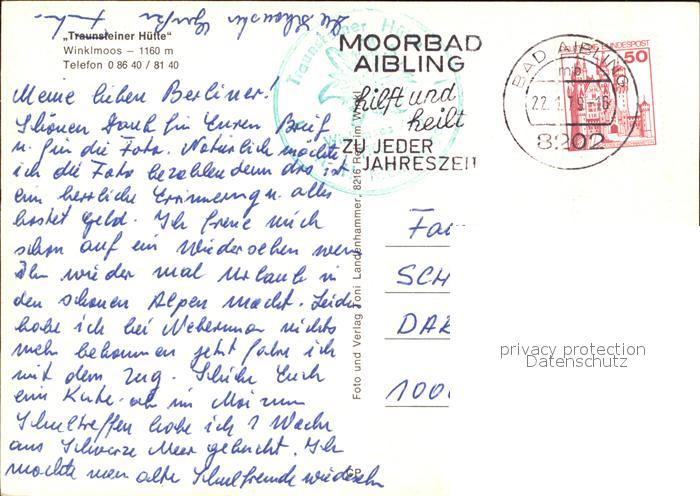 Die schönsten Grüße
„Traunsteiner Hütte"
Winklmoos – 1160 m
Telefon 0 86 40 / 81 40
Meine lieben Berliner!
Schönen Dank für Euren Brief
u. für die Foto. Natürlich möchte
ich die Foto bezahlen denn das ist
ein herrliche Erinnerung u. alles
kostet Geld. Ich freue mich
schon auf ein Wiedersehen wenn
Ihr wieder mal Urlaub in
den schönen Alpen macht. Leider
habe ich bei nichts
mehr bekommen jetzt fahre ich
mit dem Zug. Schicke Euch
eine Karte. ab im Mai zum
Schultreffen habe ich 1 Woche
ans Schwarze Meer gebucht. Ich
möchte mein alte Schulfreunde wiedersehn
Traunsteiner Hütte
MOORBAD
AIBLING
hilft und
heilt
ZU JEDER
JAHRESZEIT
BAD AIBLING
mb
22.1.79-16
8202
DEUTSCHE BUNDESPOST
50
Foto und Verlag Toni Landenhammer, 8216 Reit im Winkl
Fa
SCH
DAR
1000
privacy protection
Datenschutz